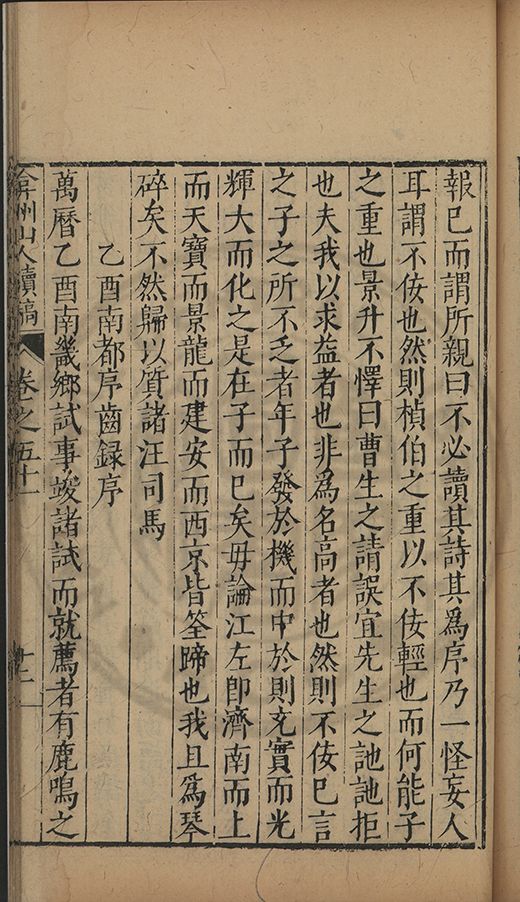 報已而謂所親曰不必讀其詩其爲序乃一怪妄人
耳謂不佞也然則楨伯之重以不佞輕也而何能子
之重也景升不懌曰曹生之請誤宜先生之訑訑拒
也夫我以求益者也非爲名高者也然則不佞已言
之子之所不乏者年子發於機而中於則充實而光
輝大而化之是在子而已矣毋論江左卽濟南而上
而天寶而景龍而建安而西京皆筌蹄也我且爲琴
碎矣不然歸以質諸汪司馬
乙酉南都序齒録序
萬曆乙酉南畿鄉試事竣諸試而就薦者有鹿鳴之
弇州山人續稿
卷之五十一
十二